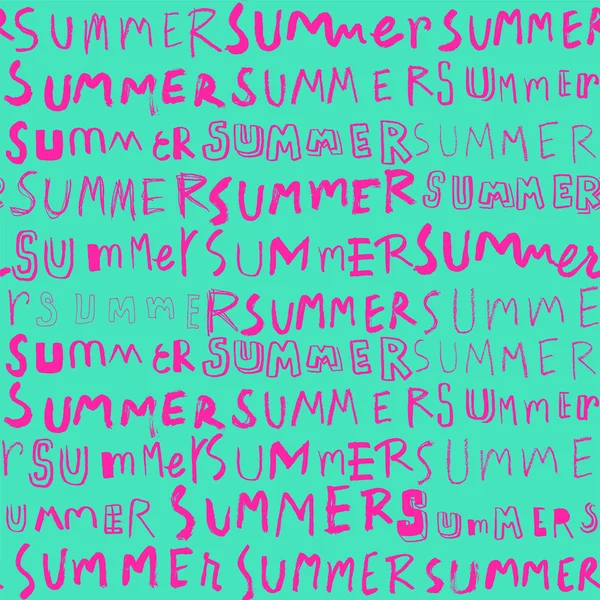 R SUMMER SUMMer SUMMER
SUMMER SUMMER SUMMEr
SUMMER SUMMER SUMMER
R SUMMER SUMMER SUMMER
SUmmer SUMMER SUMMer
r SUMMER SUMMER SUMME
SUMMER SUMMER SUMMER
SUMMER SUMMER SUMMEr
r SUmmer SUMMER SUMME
UMMER SUMMER SUmMER S
SUMMEr SUMMER SUMMER